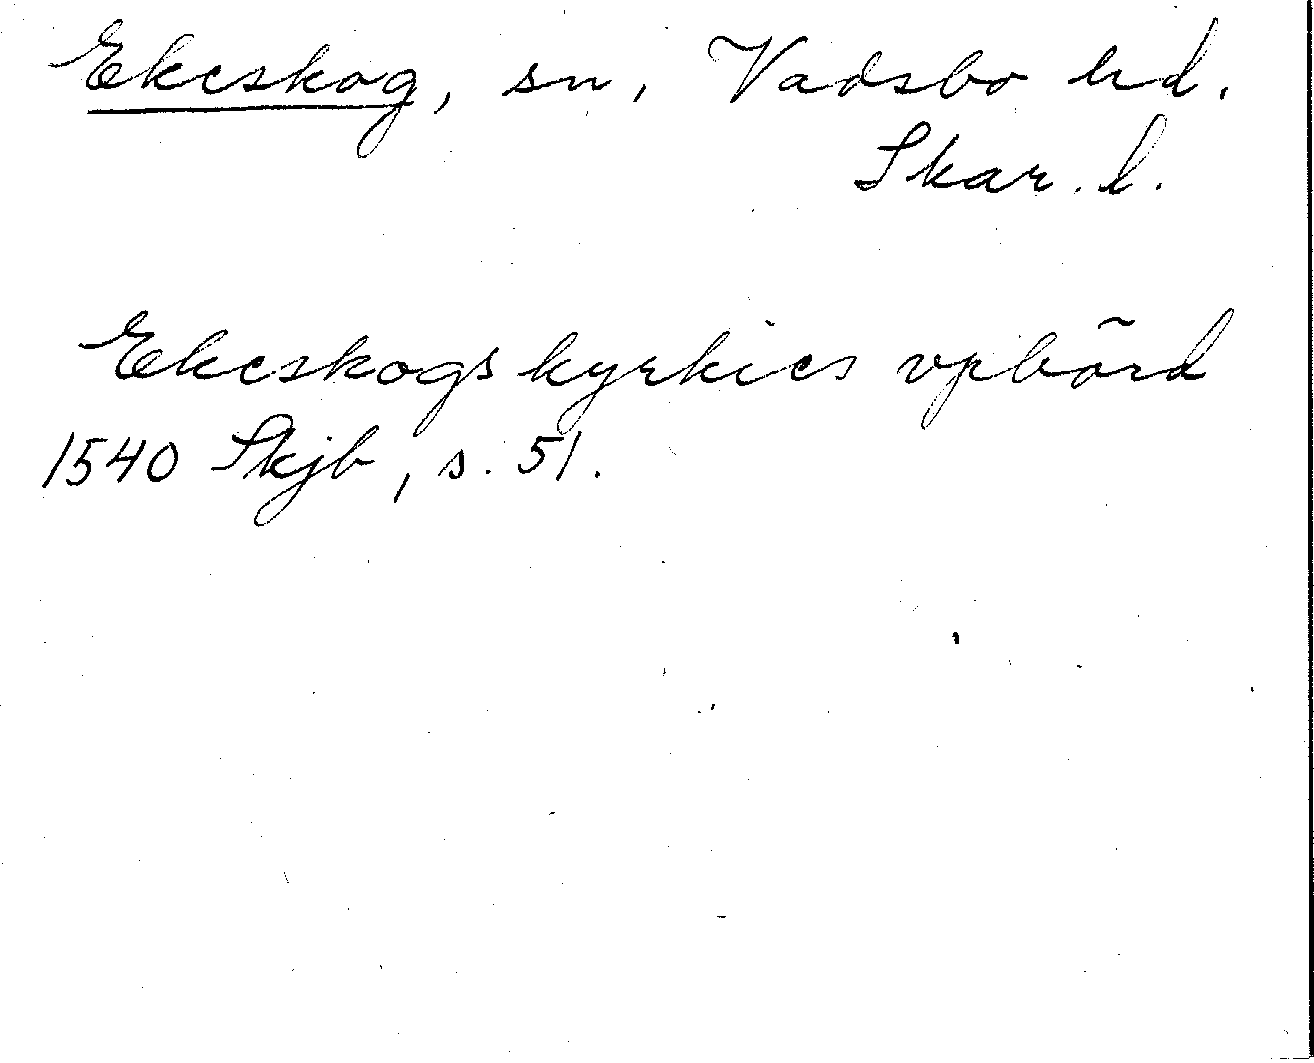 Ekeskog, sn, Vadsbo hd.
Skar. l.
Ekeskogs kyrkies vpbörd
1540 Skjb, s. 51.